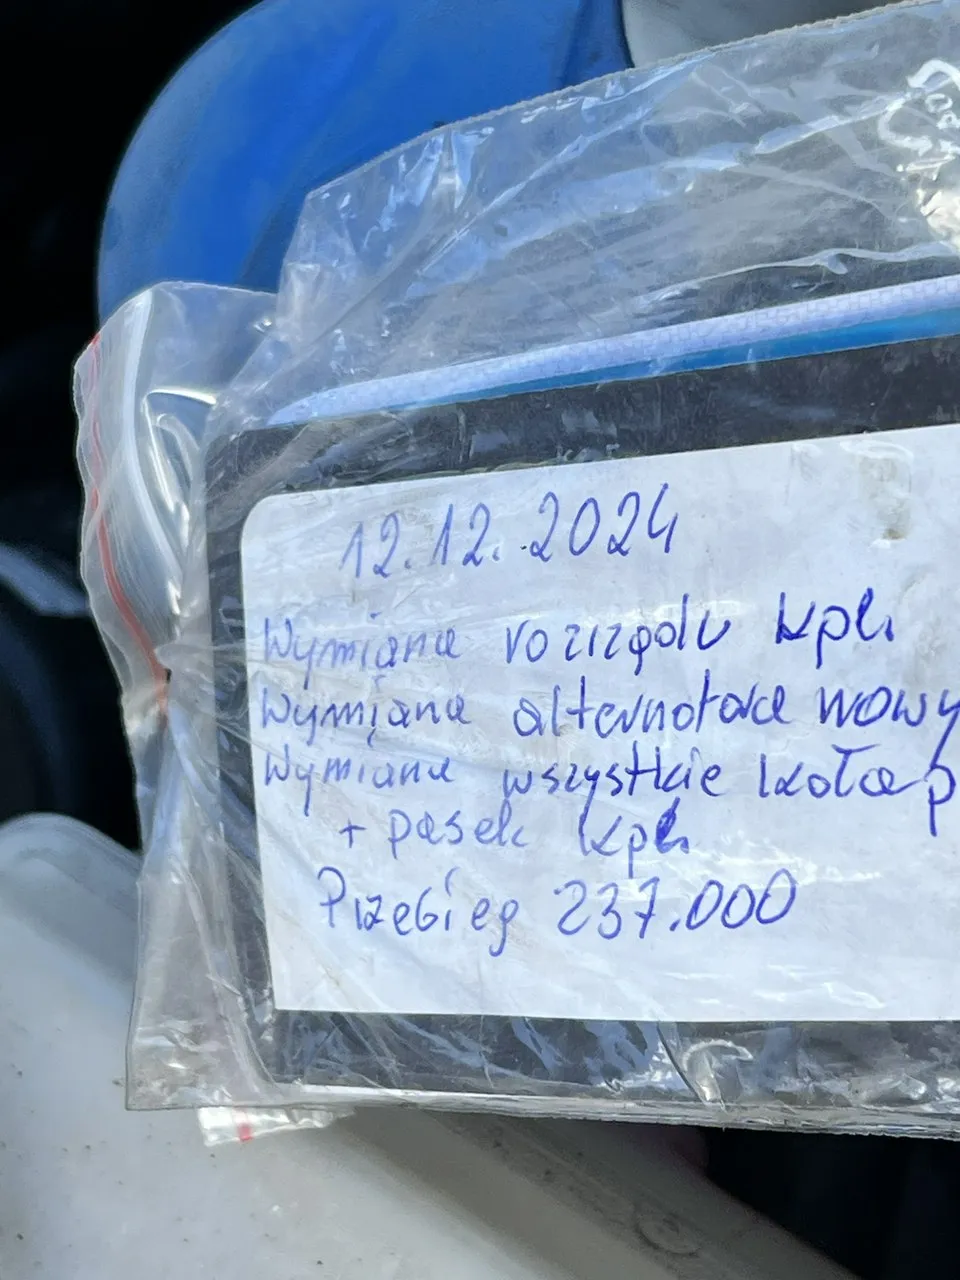 12.12.2024
Wymiana rozrządu kpl.
Wymiana alternatora nowy
Wymiana wszystkie koła p
+ pasek kpl.
Przebieg 237.000